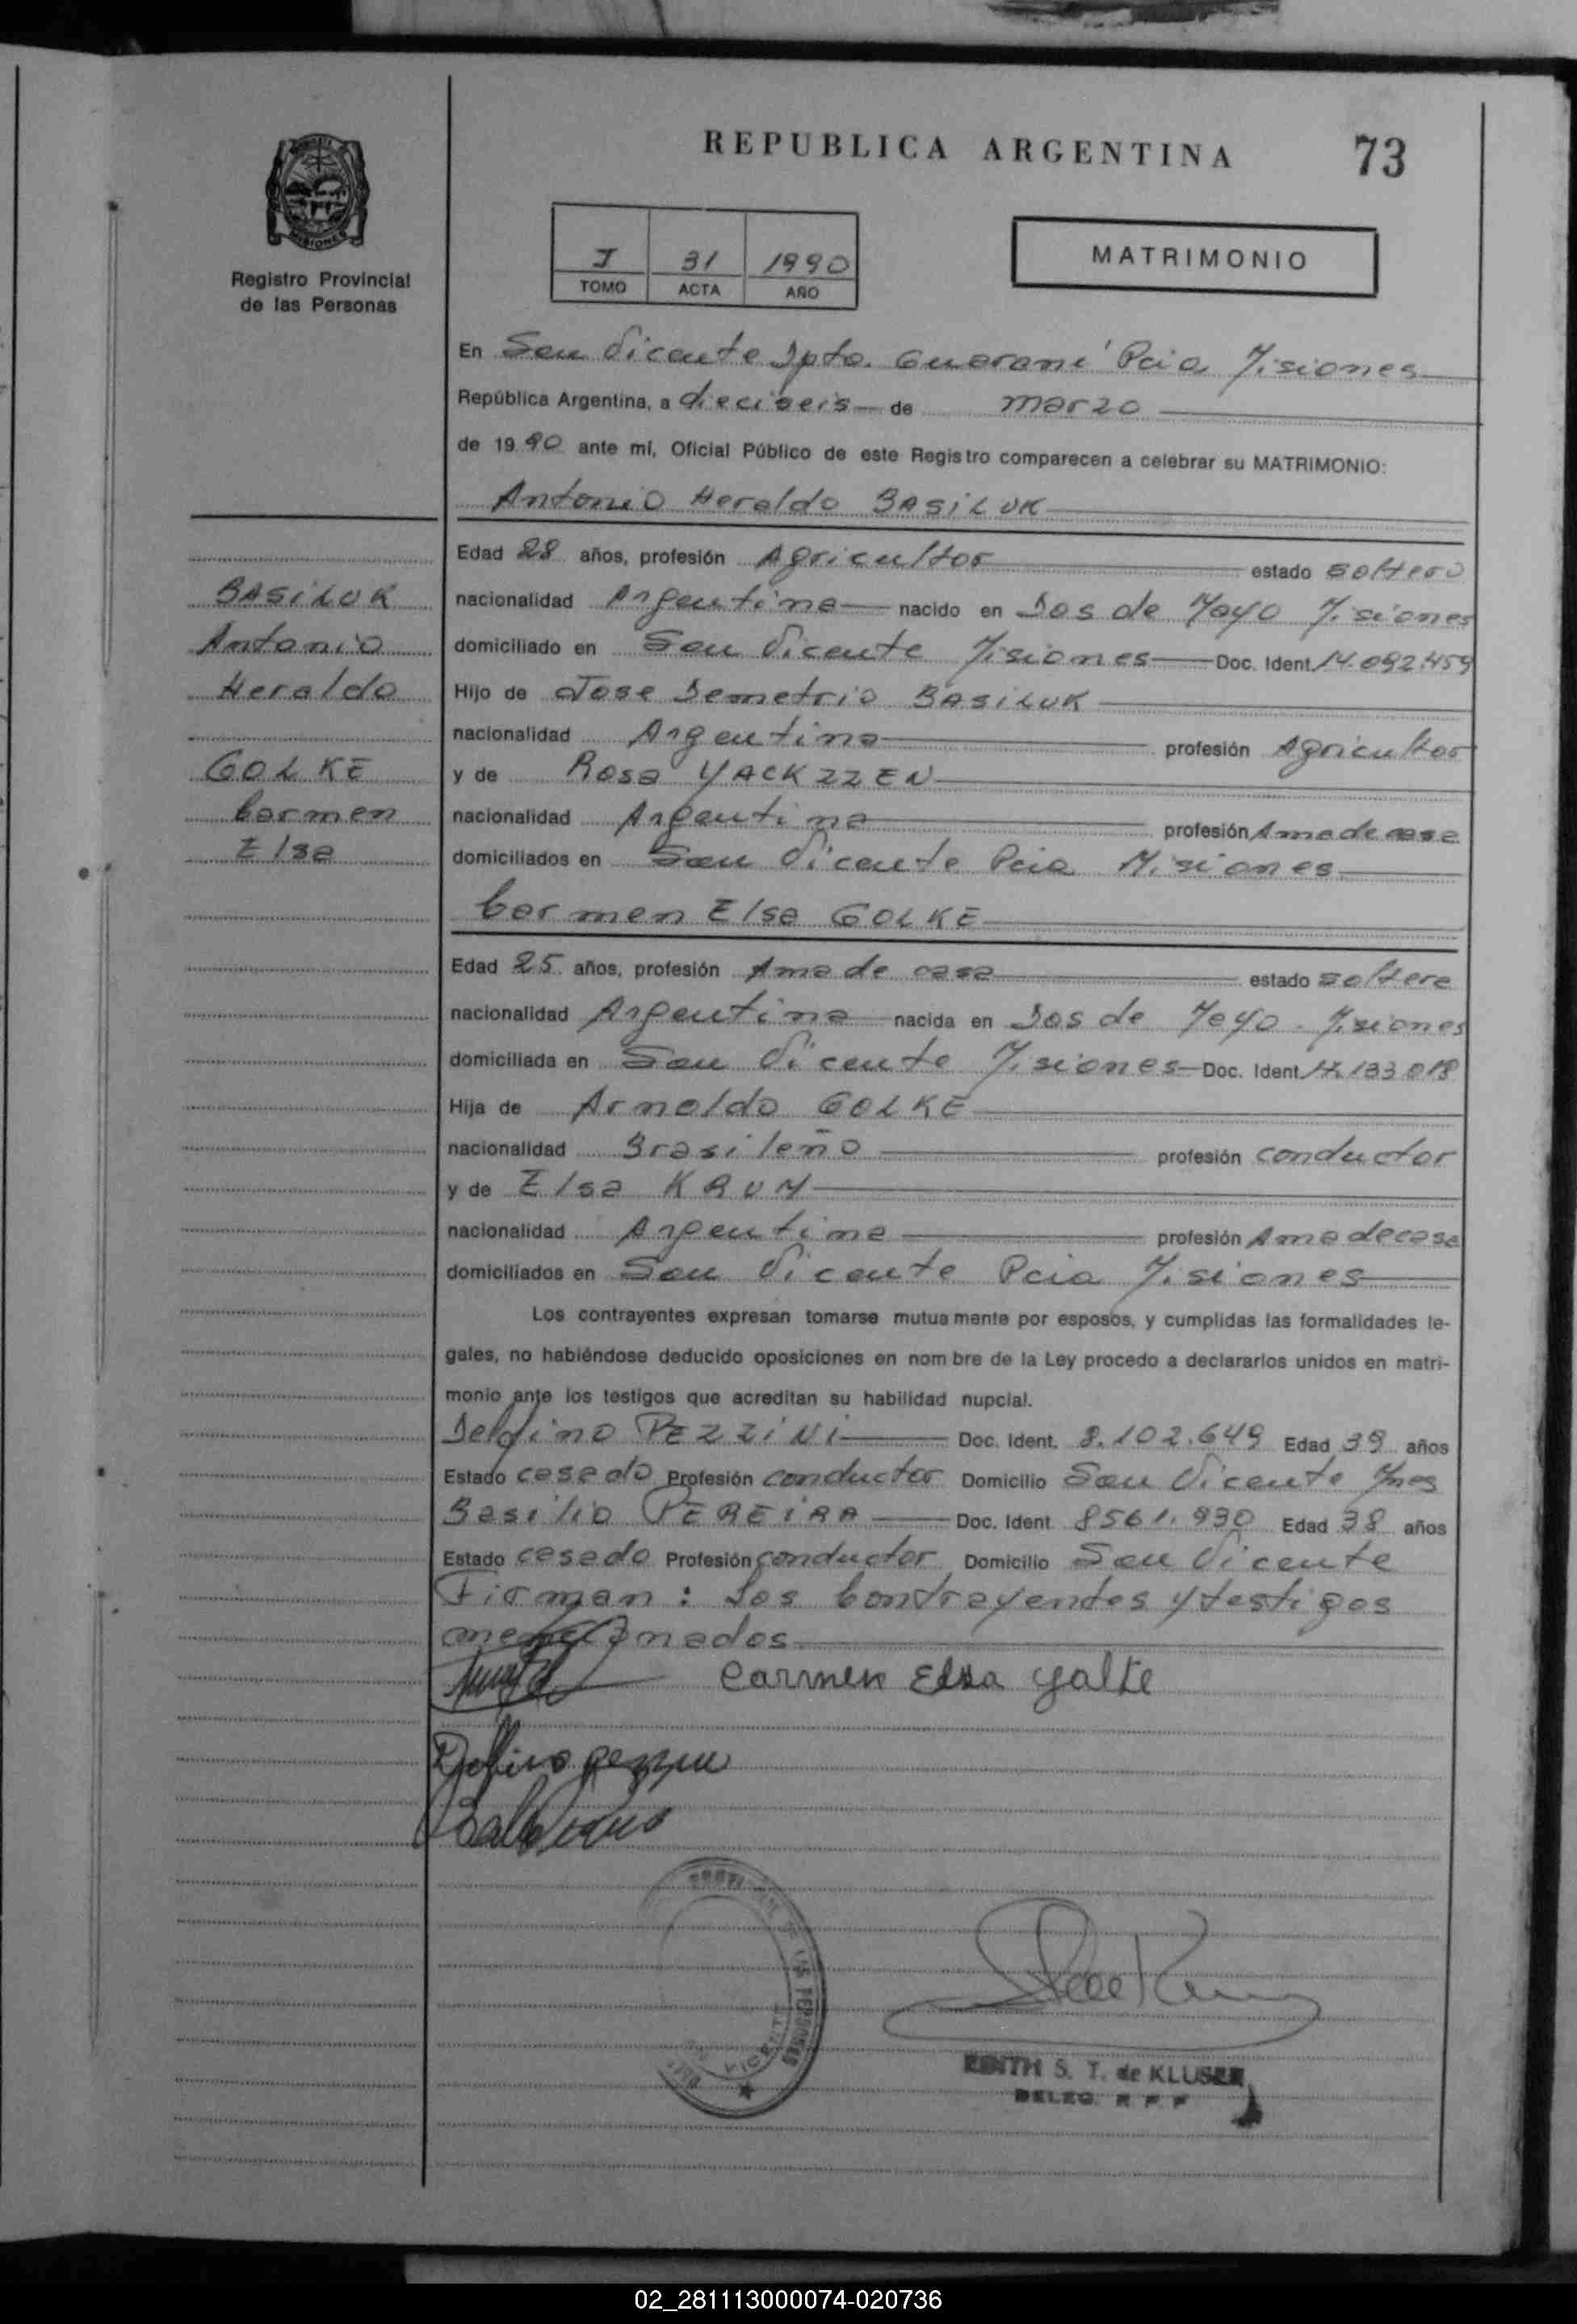 REPUBLICA ARGENTINA
73
MISIONES
Registro Provincial
de las Personas
I 31 1990
TOMO ACTA AÑO
MATRIMONIO
En San Vicente Dpto. Guaraní Pcia Misiones
República Argentina, a dieciseis de marzo
de 1990 ante mí, Oficial Público de este Registro comparecen a celebrar su MATRIMONIO:
Antonio Heraldo BASILUK
BASILUK
Antonio
Heraldo
GOLKE
Carmen
Elsa
Edad 28 años, profesión Agricultor estado soltero
nacionalidad Argentina nacido en Dos de Mayo Misiones
domiciliado en San Vicente Misiones Doc. Ident. 14.092.459
Hijo de Jose Demetrio BASILUK
nacionalidad Argentina profesión Agricultor
y de Rosa YACKZZEN
nacionalidad Argentina profesión Ama de casa
domiciliados en San Vicente Pcia Misiones
Carmen Elsa GOLKE
Edad 25 años, profesión Ama de casa estado soltera
nacionalidad Argentina nacida en Dos de Mayo. Misiones
domiciliada en San Vicente Misiones Doc. Ident.
Hija de Arnoldo GOLKE
nacionalidad Brasileño profesión conductor
y de Elsa KRUM
nacionalidad Argentina profesión Ama de casa
domiciliados en San Vicente Pcia Misiones
Los contrayentes expresan tomarse mutuamente por esposos, y cumplidas las formalidades le-
gales, no habiéndose deducido oposiciones en nombre de la Ley procedo a declararlos unidos en matri-
monio ante los testigos que acreditan su habilidad nupcial.
Delfino PEZZINI Doc. Ident. 8.102.649 Edad 39 años
Estado casado Profesión conductor Domicilio San Vicente Mnes
Basilio PEREIRA Doc. Ident. 8561.930 Edad 38 años
Estado casado Profesión conductor Domicilio San Vicente
Firman: Los Contrayentes y testigos
mencionados
Carmen Elsa Golke
Delfino
VICENTE
EDITH S. T. de KLUSER
DELEG. R P. P
02_281113000074-020736